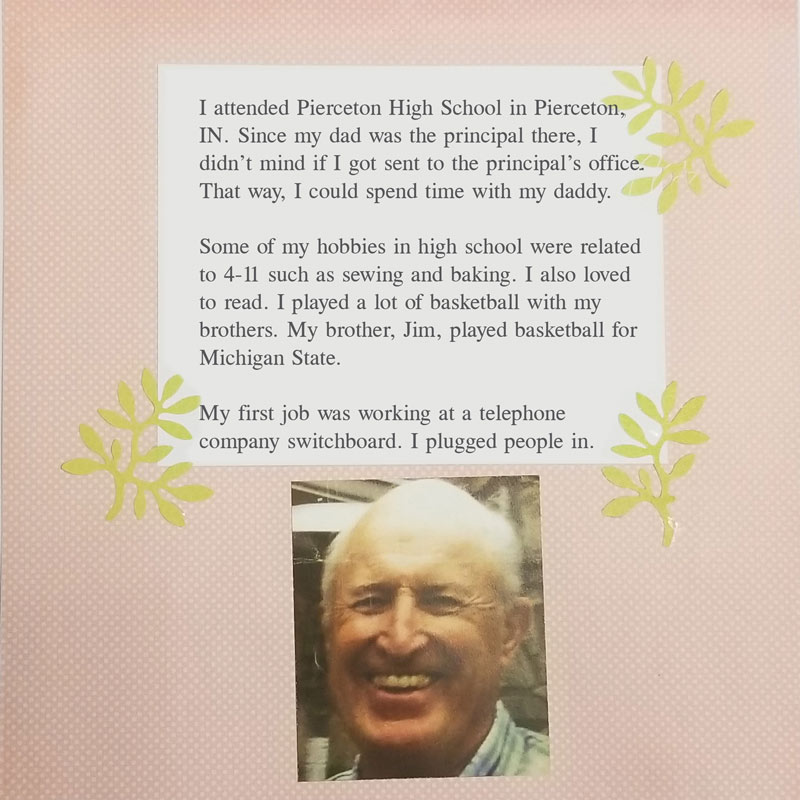 I attended Pierceton High School in Pierceton,
IN. Since my dad was the principal there, I
didn't mind if I got sent to the principal's office.
That way, I could spend time with my daddy.
Some of my hobbies in high school were related
to 4-11 such as sewing and baking. I also loved
to read. I played a lot of basketball with my
brothers. My brother, Jim, played basketball for
Michigan State.
My first job was working at a telephone
company switchboard. I plugged people in.